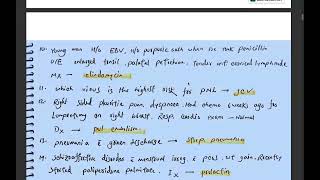 10. Young man H/o EBV, H/o purpuric rash when she took penicillin
O/E enlarged tonsil, palatal petechiae. Tender ant cervical lymphnode
Mx → clindamycin
11. which virus is the highest risk for PML → JCV
12. Right sided pleuritic pain dyspnoea. Had chemo (weeks ago for
lumpectomy on right breast. Resp. cardio exam - normal
Dx → pul embolism.
13. pneumonia c green discharge → strep. pneumoniae
14. Schizoaffective disorder c menstrual irreg. c wt gain. Recently
started paliperidone palmitate. Ix → prolactin